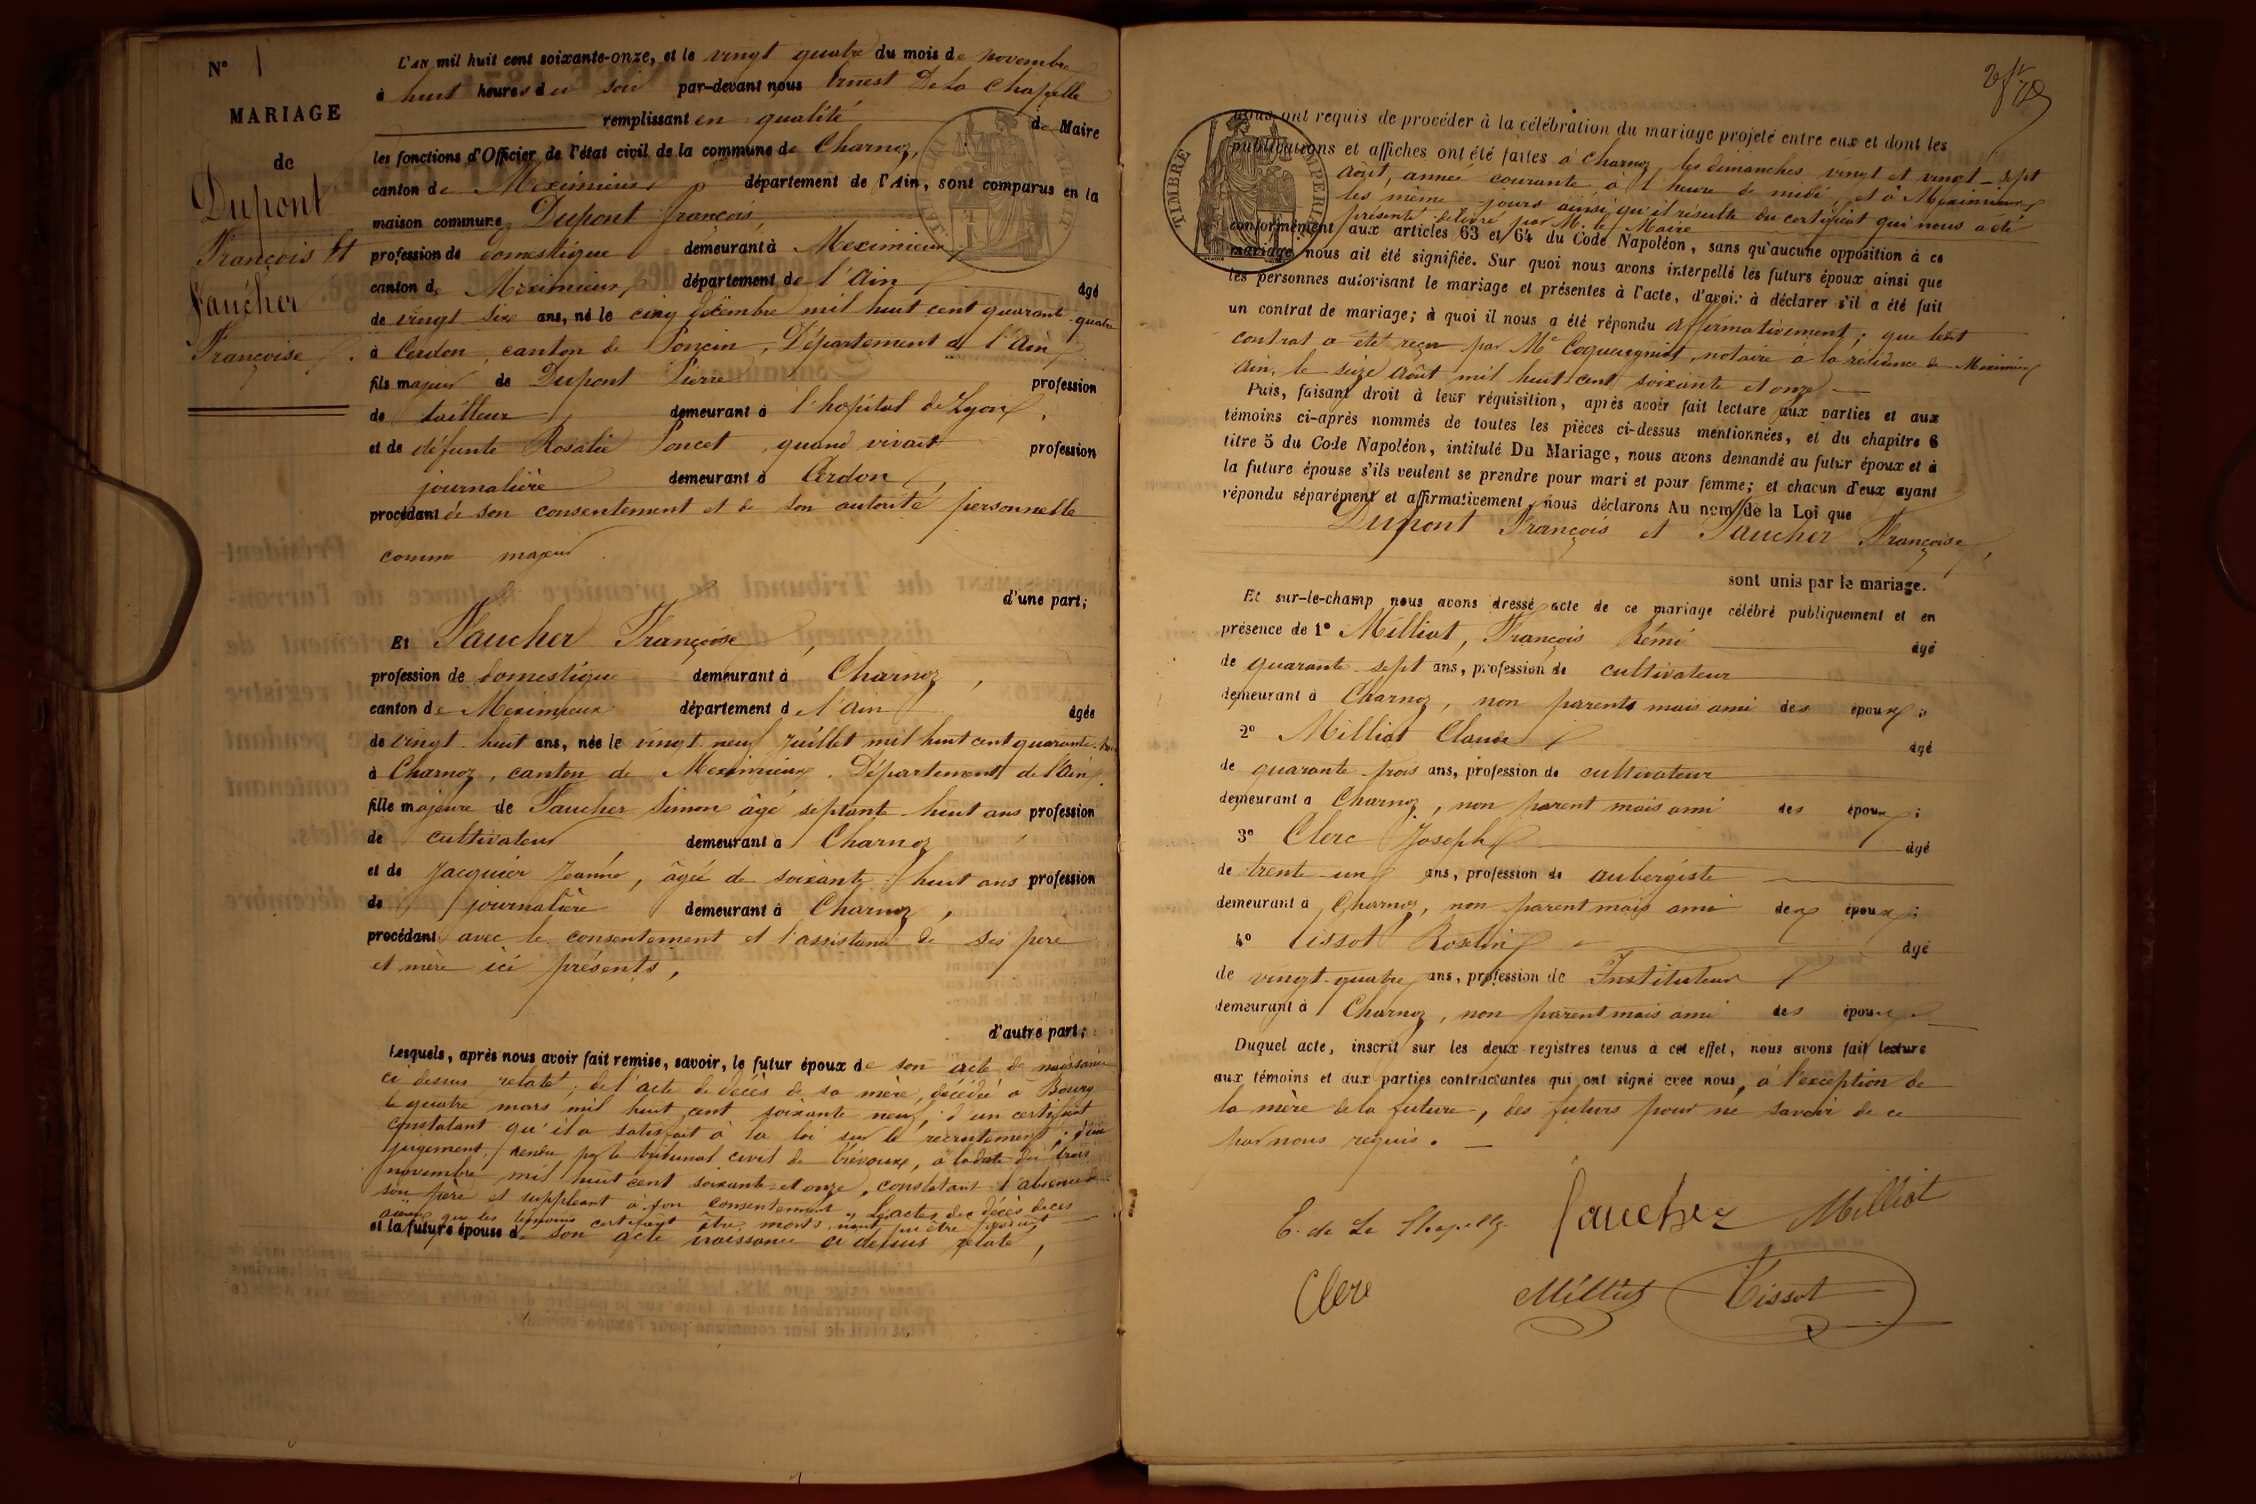 N° 1
MARIAGE
de
Dupont
François Et
Faucher
Françoise
L'AN mil huit cent soixante-onze, et le vingt quatre du mois de novembre
à huit heures du soir par-devant nous Ernest De La Chapelle
remplissant en qualité de Maire
les fonctions d'Officier de l'état civil de la commune de Charnoz,
canton de Meximieux, département de l'Ain, sont comparus en la
maison commune, Dupont françois,
profession de domestique demeurant à Meximieux,
canton de Meximieux, département de l'Ain, âgé
de vingt six ans, né le cinq décembre mil huit cent quarante-quatre
à Cerdon, canton de Poncin, Département de l'Ain,
fils majeur de Dupont Pierre profession
de tailleur, demeurant à l'hopital de Lyon,
et de défunte Rosalie Poncet, quand vivait profession
journalière demeurant à Cerdon,
procédant de son consentement et de son autorité personnelle
comme majeur
d'une part;
Et Faucher Françoise,
profession de domestique demeurant à Charnoz,
canton de Meximieux département de l'Ain âgée
de vingt-huit ans, née le vingt-neuf Juillet mil huit cent quarante-
à Charnoz, canton de Meximieux, Département de l'Ain,
fille majeure de Faucher Simon âgé septante-huit ans profession
de cultivateur, demeurant à Charnoz,
et de Jacquier Jeanne, âgée de soixante-huit ans profession
de journalière demeurant à Charnoz,
procédant avec le consentement et l'assistance de ses père
et mère ici présents,
d'autre part;
Lesquels, après nous avoir fait remise, savoir, le futur époux de son acte de naissance
ci dessus relaté, de l'acte de décès de sa mère, décédée à Bourg
le quatre mars mil huit cent soixante neuf, d'un certificat
constatant qu'il a satisfait à la loi sur le recrutement, d'un
jugement rendu par le tribunal civil de Trévoux, à la date du trois
novembre mil huit cent soixante-et onze, constatant l'absence de
son père et suppléant à son consentement, les actes de décès de ces
aïeux que les témoins certifient être morts, n'ont pu être produit
et la future épouse de son acte naissance ci dessus relaté,
nous ont requis de procéder à la célébration du mariage projeté entre eux et dont les
publications et affiches ont été faites à Charnoz, les dimanches vingt et vingt-sept
Août, année courante à l'heure de midi, et à Meximieux
les même jours ainsi qu'il résulte du certificat qui nous a été
présenté délivré par M. le Maire
conformément aux articles 63 et 64 du Code Napoléon, sans qu'aucune opposition à ce
mariage nous ait été signifiée. Sur quoi nous avons interpellé les futurs époux ainsi que
les personnes autorisant le mariage et présentes à l'acte, d'avoir à déclarer s'il a été fait
un contrat de mariage; à quoi il nous a été répondu affirmativement; que
contrat a été reçu par Me Coquengniot, notaire à la residence de Meximieux
Ain, le seize Août mil huit cent soixante et onze
Puis, faisant droit à leur réquisition, après avoir fait lecture aux parties et aux
témoins ci-après nommés de toutes les pièces ci-dessus mentionnées, et du chapitre 6
titre 5 du Code Napoléon, intitulé Du Mariage, nous avons demandé au futur époux et à
la future épouse s'ils veulent se prendre pour mari et pour femme; et chacun d'eux ayant
répondu séparément et affirmativement, nous déclarons Au nom de la Loi que
Dupont François et Faucher Françoise,
sont unis par le mariage.
Et sur-le-champ nous avons dressé acte de ce mariage célébré publiquement et en
présence de 1° Milliat, François Rémi âgé
de quarante-sept ans, profession de cultivateur
demeurant à Charnoz, non parents mais ami des époux;
2° Milliat Claude âgé
de quarante-trois ans, profession de cultivateur
demeurant à Charnoz, non parent mais ami des époux;
3° Clerc Joseph âgé
de trente-un ans, profession de aubergiste
demeurant à Charnoz, non parent mais ami des époux;
4° Tissot Roselin âgé
de vingt-quatre ans, profession de Instituteur
demeurant à Charnoz, non parent mais ami des époux
Duquel acte, inscrit sur les deux registres tenus à cet effet, nous avons fait lecture
aux témoins et aux parties contractantes qui ont signé avec nous, à l'exception de
la mère de la future, des futurs pour ne savoir de ce
par nous requis.
E. de La Chapelle Faucher Milliat
Clerc Milliat Tissot
TIMBRE IMPERIAL